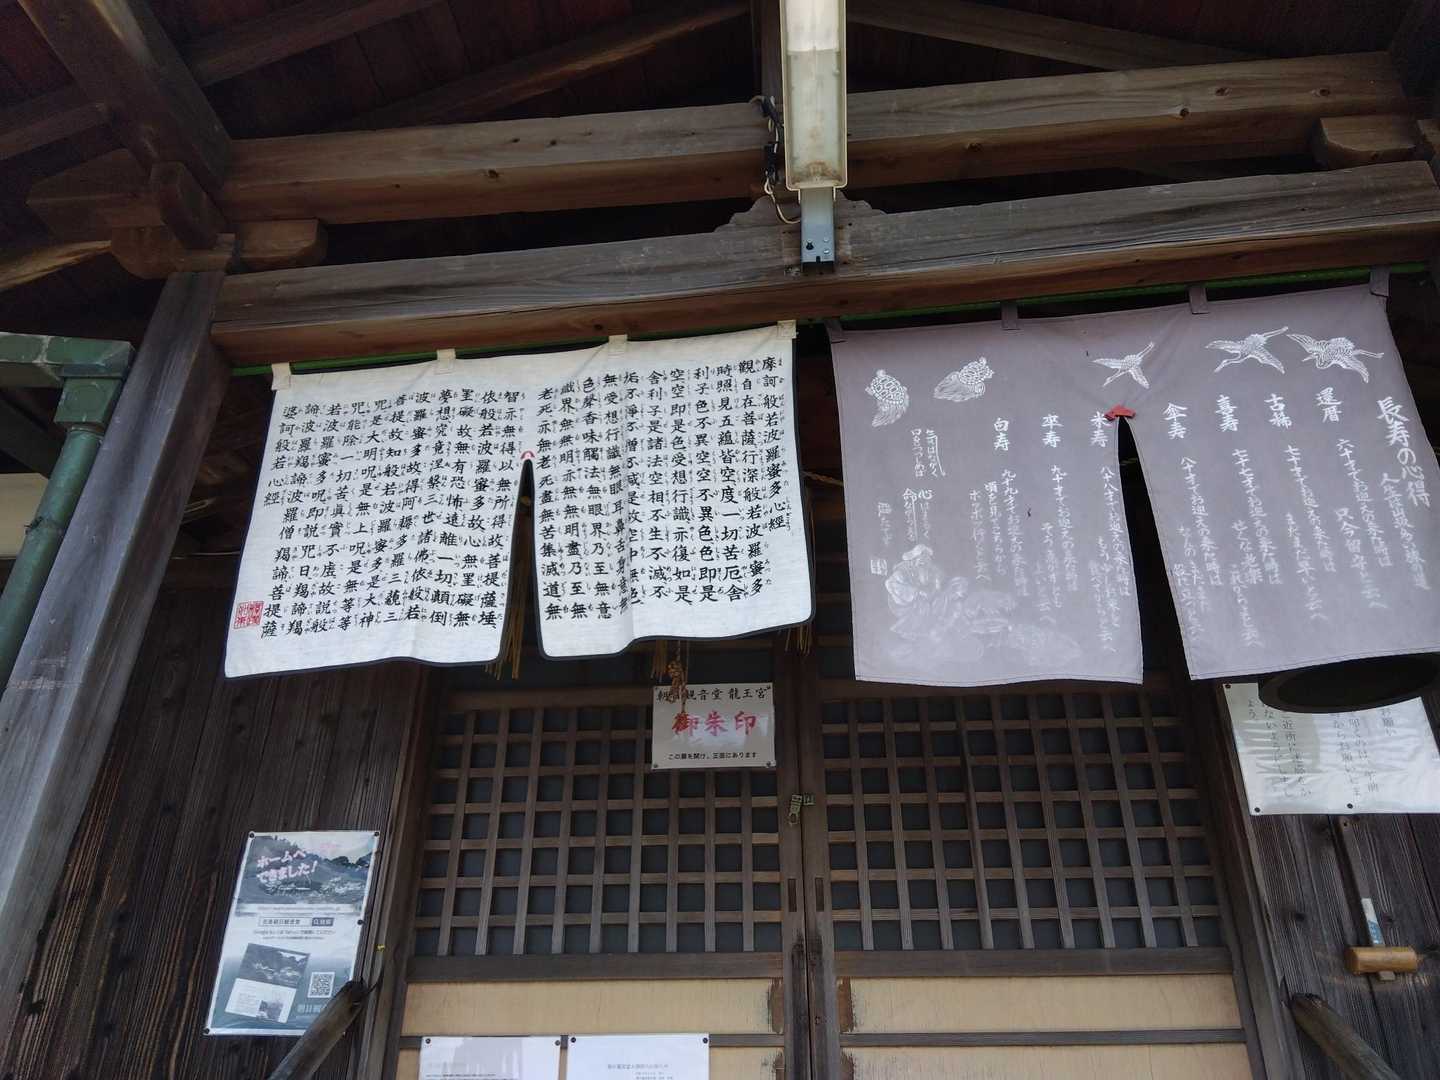 摩訶般若波羅蜜多心経
觀自在菩薩行深般若波羅蜜多
時照見五蘊皆空度一切苦厄舍
利子色不異空空不異色色即是
空空即是色受想行識亦復如是
舍利子是諸法空相不生不滅不
垢不淨不增不減是故空中無色
無受想行識無眼耳鼻舌身意無
色聲香味觸法無眼界乃至無意
識界無無明亦無無明盡乃至無
老死亦無老死盡無苦集滅道無
智亦無得以無所得故菩提薩埵
依般若波羅蜜多故心無罣礙無
罣礙故無有恐怖遠離一切顛倒
夢想究竟涅槃三世諸佛依般若
波羅蜜多故得阿耨多羅三藐三
菩提故知般若波羅蜜多是大神
咒是大明咒是無上咒是無等等
咒能除一切苦真實不虛故説般
若波羅蜜多呪即説咒曰羯諦羯
諦波羅羯諦波羅僧羯諦菩提薩
婆訶般若心經
長寿の心得
人生は山坂多い旅の道
還暦 六十才でお迎えの来た時は
只今留守と云へ
古稀 七十才でお迎えの来た時は
まだまだ早いと云へ
喜寿 七十七才でお迎えの来た時は
せくな老楽これからよと云へ
傘寿 八十才でお迎えの来た時は
米寿 八十八才でお迎えの来た時は
卒寿 九十才でお迎えの来た時は
そう急がずともよいと云へ
白寿 九十九才でお迎えの来た時は
頃を見てこちらから
ボツボツ行くと云へ
観音堂 龍王宮
御朱印
この扉を開け、正面にあります
ホームペ
できました!